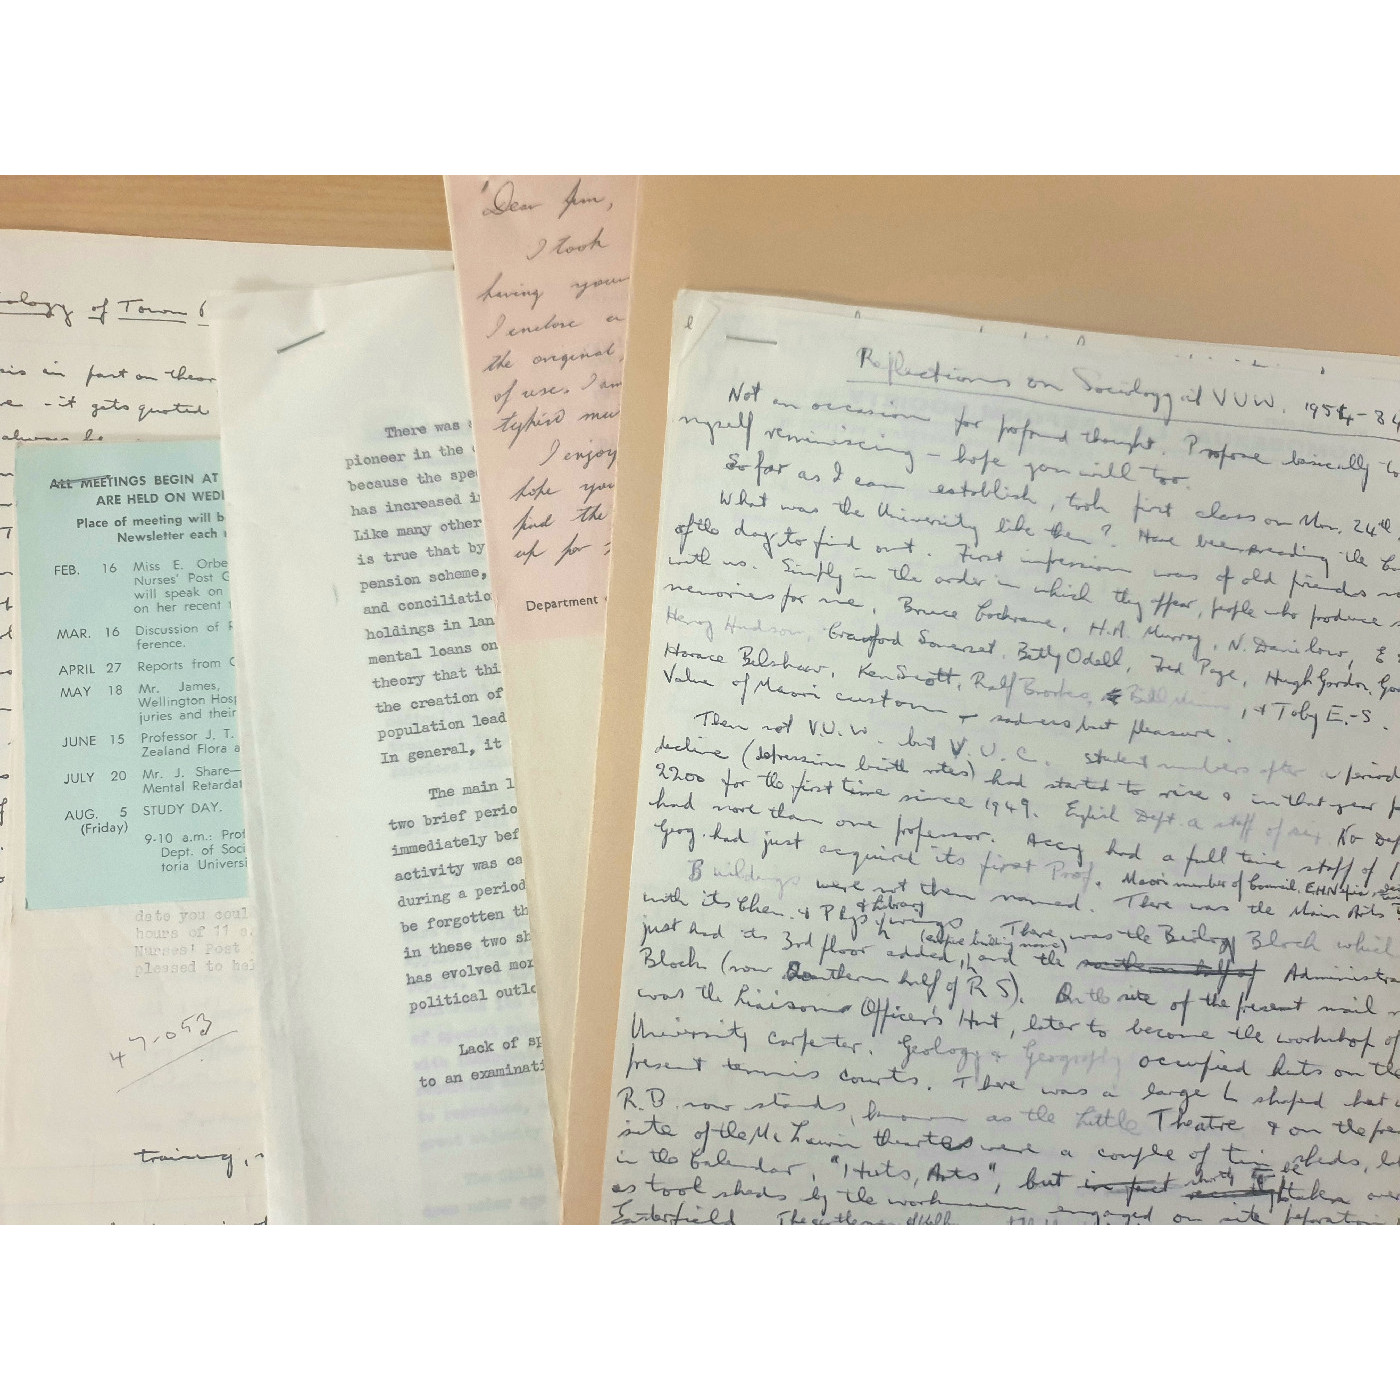 ology of Town
sis in part on theor
e - it gets quoted
always be
ALL MEETINGS BEGIN AT
ARE HELD ON WEDN
Place of meeting will b
Newsletter each
FEB. 16 Miss E. Orbe
Nurses' Post G
will speak on
on her recent
MAR. 16 Discussion of R
ference.
APRIL 27 Reports from C
MAY 18 Mr. James,
Wellington Hosp
juries and their
JUNE 15 Professor J. T.
Zealand Flora a
JULY 20 Mr. J. Share—
Mental Retardat
AUG. 5 STUDY DAY.
(Friday)
9-10 a.m.: Prof
Dept. of Soci
toria Universi
date you coul
hours of 11 a.
Nurses' Post
pleased to hel
47-053
training,
There was
pioneer in the
because the spe
has increased i
Like many other
is true that by
pension scheme,
and conciliatio
holdings in lan
mental loans on
theory that thi
the creation of
population lead
In general, it
The main l
two brief perio
immediately bef
activity was ca
during a period
be forgotten th
in these two sh
has evolved mor
political outlo
Lack of sp
to an examinati
Dear Jim,
I took
having your
I enclose a
the original,
of uses. I am
I enjoy
hope you
find the
up for
Department
Reflections on Sociology at VUW. 1954-84
Not an occasion for profound thought. Propose basically to
myself reminiscing - hope you will too.
So far as I can establish, took first class on Mon. 24th
What was the University like then? Have been reading the
of the day to find out. First impression was of old friends
with us. Simply in the order in which they appear, people who produce
memories for me, Bruce Cochrane, H.A. Murray, N. Danilow,
Henry Hudson, Crawford Somerset, Betty Odell, Fred Page, Hugh Gordon,
Horace Belshaw, Ken Scott, Ralf Brookes, Bill, & Toby E.-S.
Value of Maori custom & sadness but pleasure.
Then not V.U.W. but V.U.C. Student numbers after a period
decline (depression birth rates) had started to rise & in that year
2200 for the first time since 1949. English Dept. a staff of six. No Dep
had more than one professor. Accy had a full time staff of
Geog. had just acquired its first Prof. Maori member of Council.
Buildings were not then named. There was the Main Arts
with its Chem. & Phys & Library wings. There was the Biology Block which
just had its 3rd floor added, and the southern half of Administra
Block (now Southern half of R S). On the site of the present mail
was the Liaison Officer's Hut, later to become the workshop of
University carpenter. Geology & Geography occupied huts on the
present tennis courts. There was a large L shaped hut
R.B. now stands, known as the Little Theatre & on the pre
site of the McLaurin theartes were a couple of tin sheds,
in the Calendar, "Huts, Arts", but in fact shortly to be taken over
as tool sheds by the workmen engaged on site preparation
Easterfield.